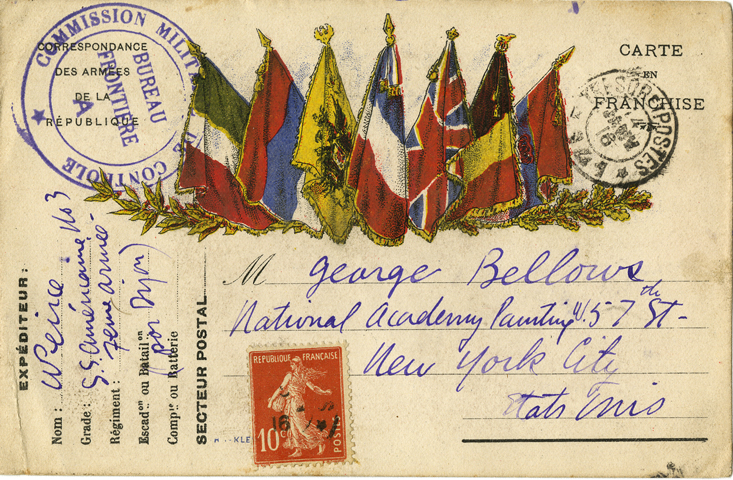 CORRESPONDANCE
DES ARMÉES
DE LA
RÉPUBLIQUE
COMMISSION MILITAIRE DE CONTRÔLE
BUREAU
FRONTIÈRE
A
CARTE
EN
FRANCHISE
TRESOR ET POSTES
16
M George Bellows
National Academy Painting W. 57th St-
New York City
Etats Unis
EXPÉDITEUR :
Nom :
Grade : S.S. Américaine No 3
Régiment : 7eme armée-
Escadon ou Batailon (par Dijon)
Compie ou Batterie
SECTEUR POSTAL
REPUBLIQUE FRANÇAISE
10c
POSTES
16